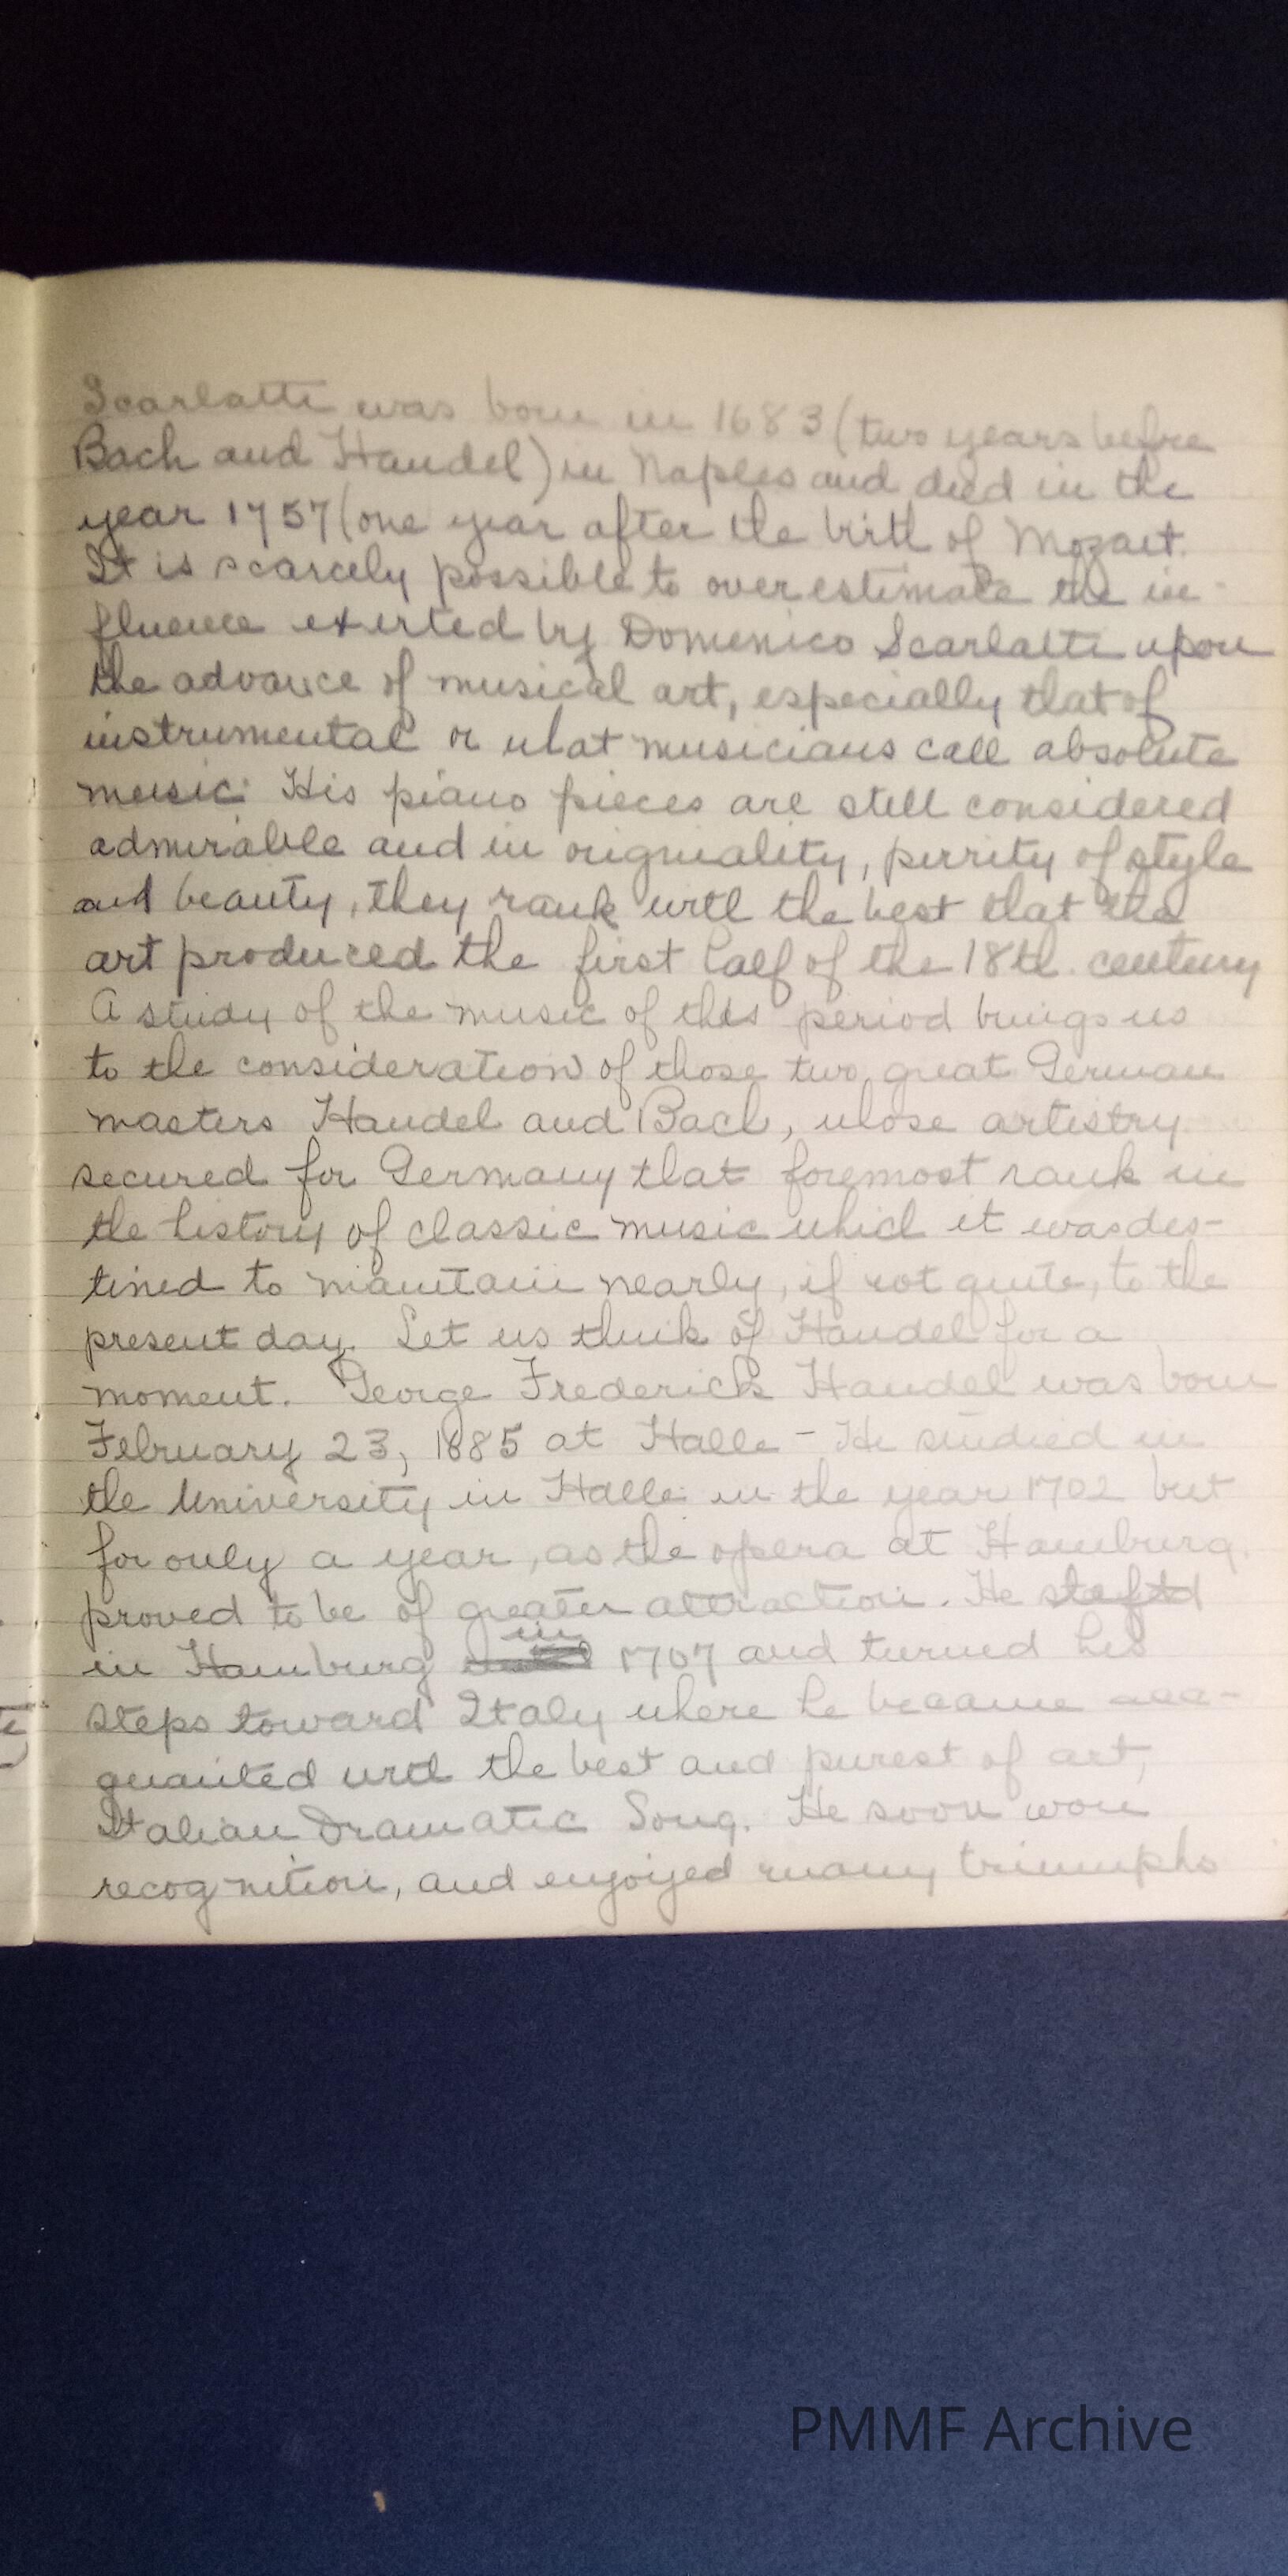 Scarlatti was born in 1683 (two years before
Bach and Handel) in Naples and died in the
year 1757 (one year after the birth of Mozart.
It is scarcely possible to overestimate the in-
fluence exerted by Domenico Scarlatti upon
the advance of musical art, especially that of
instrumental or what musicians call absolute
music. His piano pieces are still considered
admirable and in originality, purity of style
and beauty, they rank with the best that the
art produced the first half of the 18th century
A study of the music of this period brings us
to the consideration of those two great German
masters Handel and Bach, whose artistry
secured for Germany that foremost rank in
the history of classic music which it was des-
tined to maintain nearly, if not quite, to the
present day. Let us think of Handel for a
moment. George Frederick Handel was born
February 23, 1885 at Halle - He studied in
the University in Halle in the year 1702 but
for only a year, as the opera at Hamburg
proved to be of greater attraction. He
in Hamburg in 1707 and turned his
steps toward Italy where he became acc-
quainted with the best and purest of art,
Italian Dramatic Song. He soon won
recognition, and enjoyed many triumphs
PMMF Archive